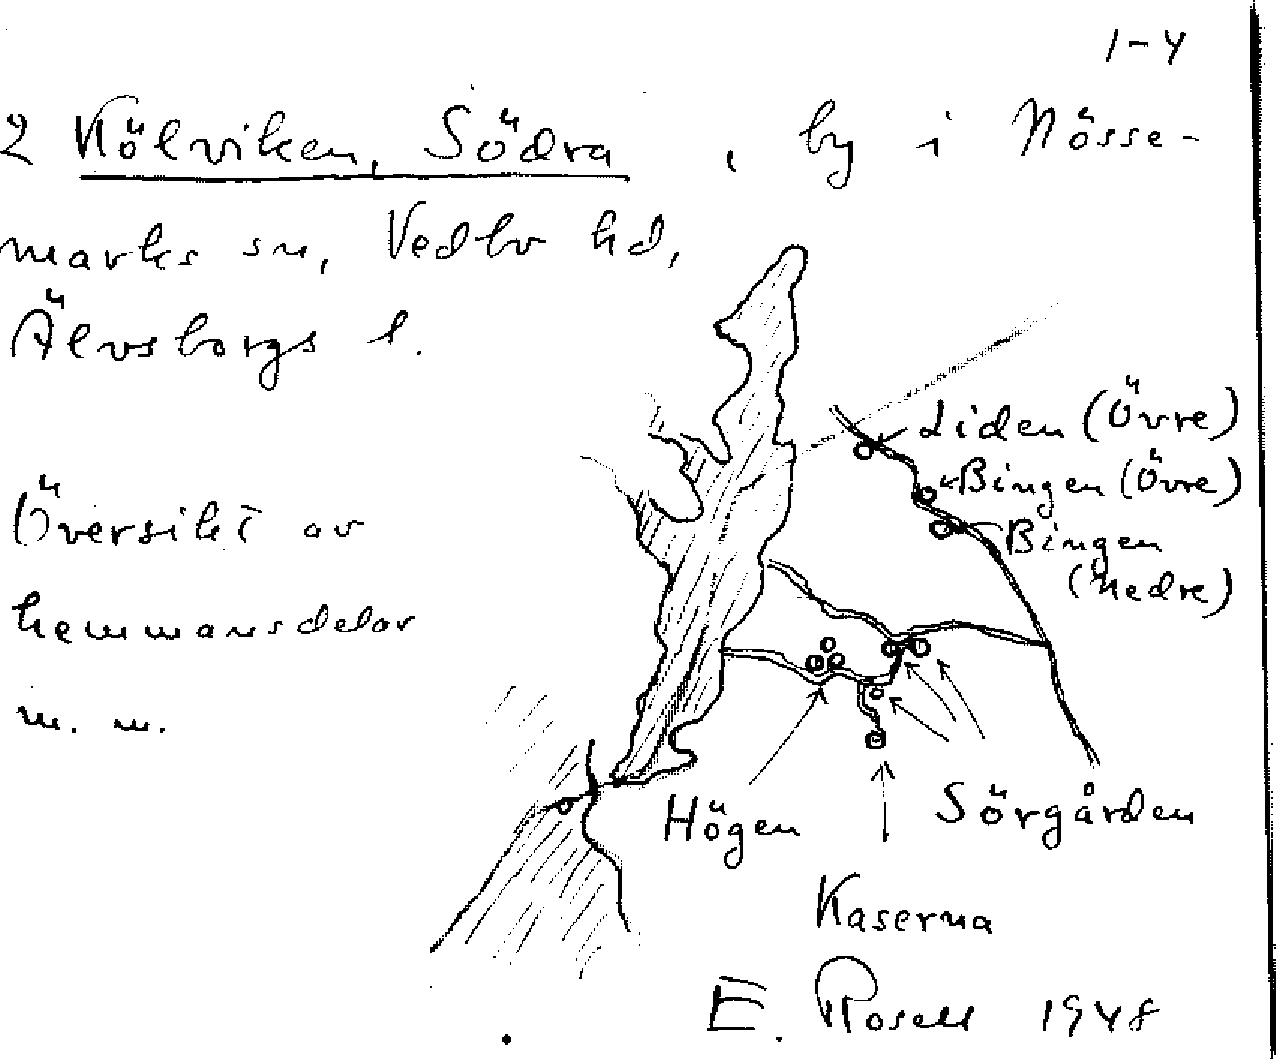 1-4
2 Kölviken, Södra, by i Nösse-
marks sn, Vedbo hd,
Älvsborgs l.
Liden (Övre)
Bingen (Övre)
Översikt av
Bingen
(Nedre)
hemmansdelar
m. m.
Högen
Sörgården
Kaserna
E. Rosell 1948